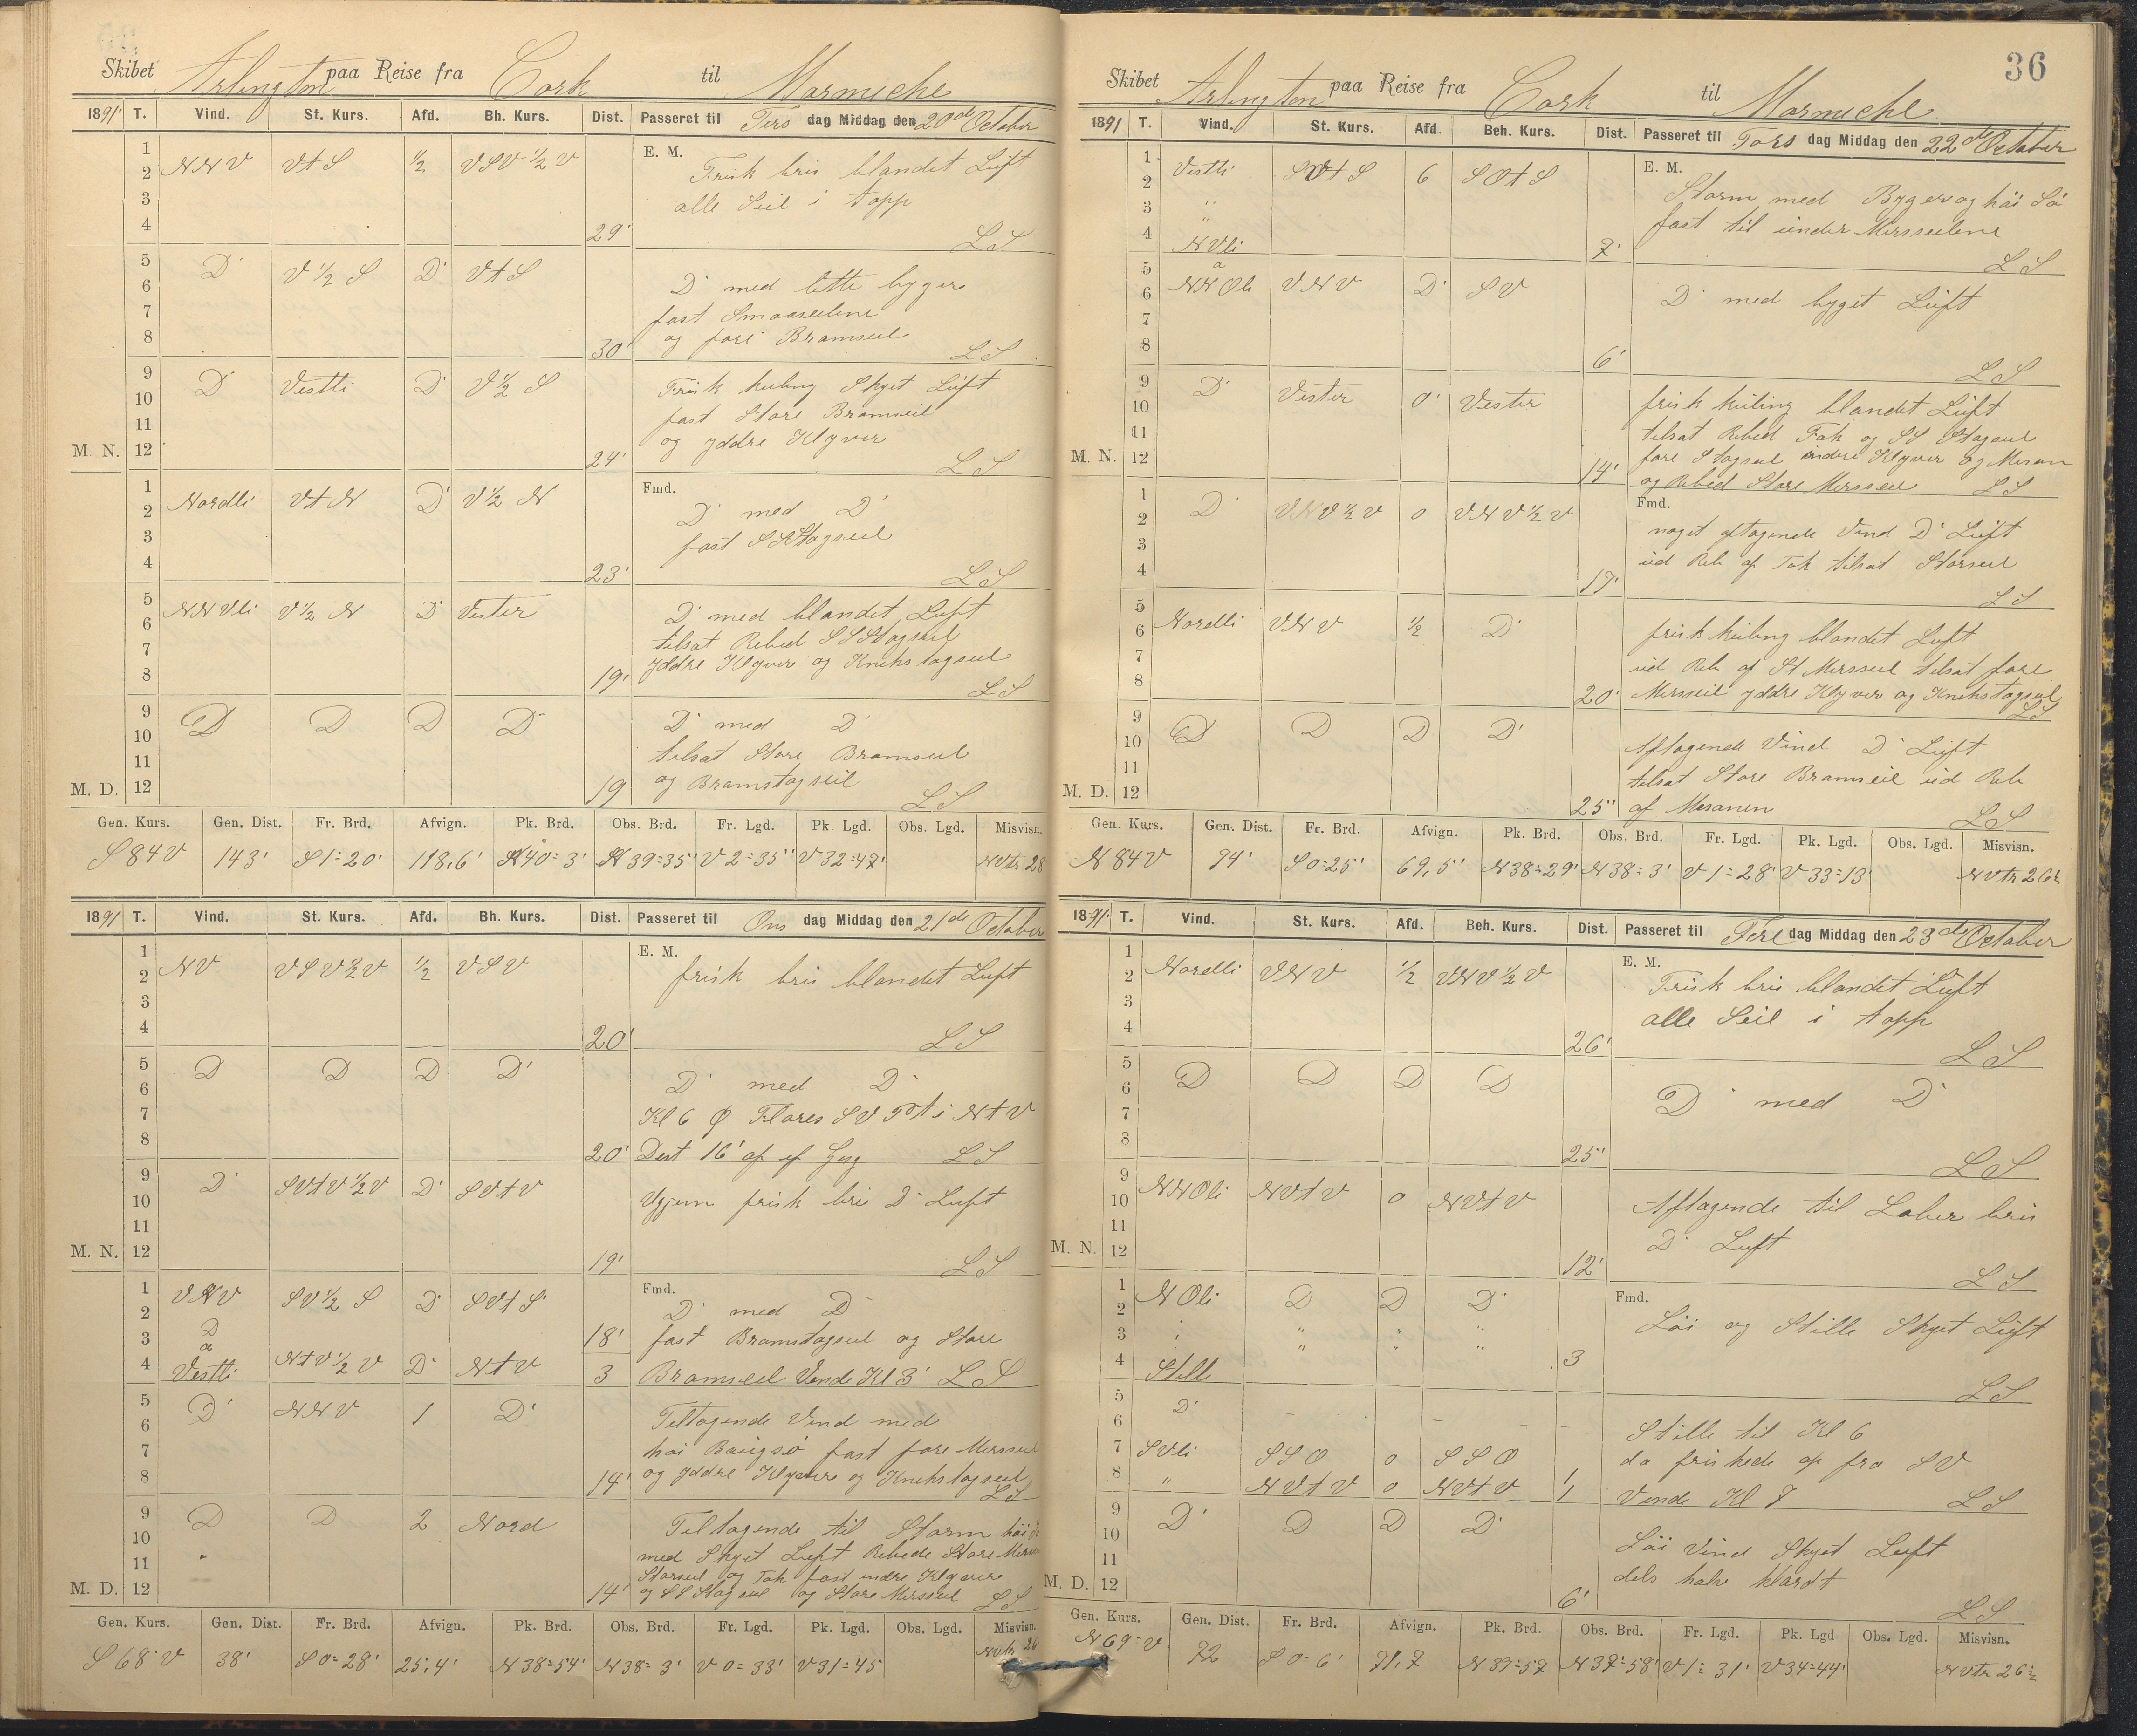 Skibet Arlington paa Reise fra Cork til Marmiche
1891 T. Vind. St. Kurs. Afd. Bh. Kurs. Dist. Passeret til Tirs dag Middag den 20de October
1
2 NNV VtS 1/2 VSV 1/2 V E. M. Frisk bris blandet Luft
3 alle Seil i topp
4 29' LS
5 D' V 1/2 S D' VtS
6 D' med lette byger
7 fast Smaaseilene
8 30' og fore Bramseil LS
9 D' Vestli D' V 1/2 S Frisk kuling Skyet Luft
10 fast Store Bramseil
11 og yddre Klyver
M. N. 12 24' LS
1 Fmd.
2 Nordli VtN D' V 1/2 N D' med D'
3 fast SStagseil
4 23' LS
5 NNVli V 1/2 N D' Vester D' med blandet Luft
6 tilsat Rebed SSStagseil
7 yddre Klyver og Knekstagseil
8 19' LS
9 D D D D' D' med D'
10 tilsat Store Bramseil
11 og Bramstagseil
M. D. 12 19 LS
Gen. Kurs. Gen. Dist. Fr. Brd. Afvign. Pk. Brd. Obs. Brd. Fr. Lgd. Pk. Lgd. Obs. Lgd. Misvisn.
S 84 V 143' S 1=20' 118,6' N 40=3' N 39=35' V 2=35' V 32=47' NVtr 28
1891 T. Vind. St. Kurs. Afd. Bh. Kurs. Dist. Passeret til Ons dag Middag den 21de October
1 E. M.
2 NV VSV 1/2 V 1/2 VSV frisk bris blandet Luft
3
4 20' LS
5 D D D D'
6 D' med D'
7 Kl 6 Flores SV Pt i NtV
8 20' Dest 16' af LS
9 D' SVtV 1/2 V D' SVtV
10 frisk bris D' Luft
11
M. N. 12 19' LS
1 VNV SV 1/2 S D' SVtS Fmd. D' med D'
2 D
3 a 18' fast Bramstagseil og Store
4 Vestli NtV 1/2 V D' NtV 3 Bramseil Vende Kl 3' LS
5 D' NNV 1 D' Tiltagende Vind med
6 høi Baugsø fast fore Mersseil
7
8 14' og yddre Klyver og Knekstagseil LS
9 D D 2 Nord Tiltagende til Storm høi
10 med Skyet Luft Rebede Store Mers
11 Storseil og Fok fast indre Klyver
M. D. 12 14' og SSStagseil og Store Mersseil LS
Gen. Kurs. Gen. Dist. Fr. Brd. Afvign. Pk. Brd. Obs. Brd. Fr. Lgd. Pk. Lgd. Obs. Lgd. Misvisn.
S 68 V 38' S 0=28' 25,4' N 38=54' N 38=3' V 0=33' V 31=45 NVtr 26
36
Skibet Arlington paa Reise fra Cork til Marmiche
1891 T. Vind. St. Kurs. Afd. Beh. Kurs. Dist. Passeret til Tors dag Middag den 22de October
1 Vestli SOtS 6 SOtS E. M.
2 Storm med Byger og høi Sø
3 " fast til under Mersseilene
4 " NVli 7' LS
5 a
6 NNOli VNV D' SV D' med byget Luft
7
8 6' LS
9 D' Vester 0' Vester frisk kuling blandet Luft
10 tilsat Rebed Fok og SS Stagseil
11 fore Stagseil indre Klyver og Mesan
M. N. 12 14' og Rebed Store Mersseil LS
1 Fmd.
2 D' VNV 1/2 V 0 VNV 1/2 V noget aftagende Vind D' Luft
3 ud Reb af Fok tilsat Storseil
4 17' LS
5
6 Nordli VNV 1/2 D' frisk kuling blandet Luft
7 ud Reb af St Mersseil tilsat fore
8 20' Mersseil yddre Klyver og Knekstagseil LS
9 D D D D'
10 Aftagende Vind D' Luft
11 tilsat Store Bramseil ud Reb
M. D. 12 25' af Mesanen LS
Gen. Kurs. Gen. Dist. Fr. Brd. Afvign. Pk. Brd. Obs. Brd. Fr. Lgd. Pk. Lgd. Obs. Lgd. Misvisn.
N 84 V 74' S 0=25' 69,5' N 38=29' N 38=3' V 1=28' V 33=13' NVtr 26
1891 T. Vind. St. Kurs. Afd. Beh. Kurs. Dist. Passeret til Fre dag Middag den 23de October
1 E. M.
2 Nordli VNV 1/2 VNV 1/2 V Frisk bris blandet Luft
3 alle Seil i topp
4 26' LS
5
6 D D D D D' med D'
7
8 25' LS
9
10 NNOli NVtV 0 NVtV Aftagende til Laber bris
11 D' Luft
M. N. 12 12' LS
1 Fmd.
2 NOli D D D' Løi og Stille Skyet Luft
3 " " " "
4 Stille " " " 3 LS
5 D'
6 Stille til Kl 6
7 SVli SSO 0 SSO da friskede op fra SV
8 " NVtV 0 NVtV 1 Vende Kl 7 LS
9 D' D D D'
10 Løi Vind Skyet Luft
11 dels halv klardt
M. D. 12 6' LS
Gen. Kurs. Gen. Dist. Fr. Brd. Afvign. Pk. Brd. Obs. Brd. Fr. Lgd. Pk. Lgd Obs. Lgd. Misvisn.
N 69 V 72 S 0=6' 71,7 N 37=57 N 37=58' V 1=31' V 34=44' NVtr 26